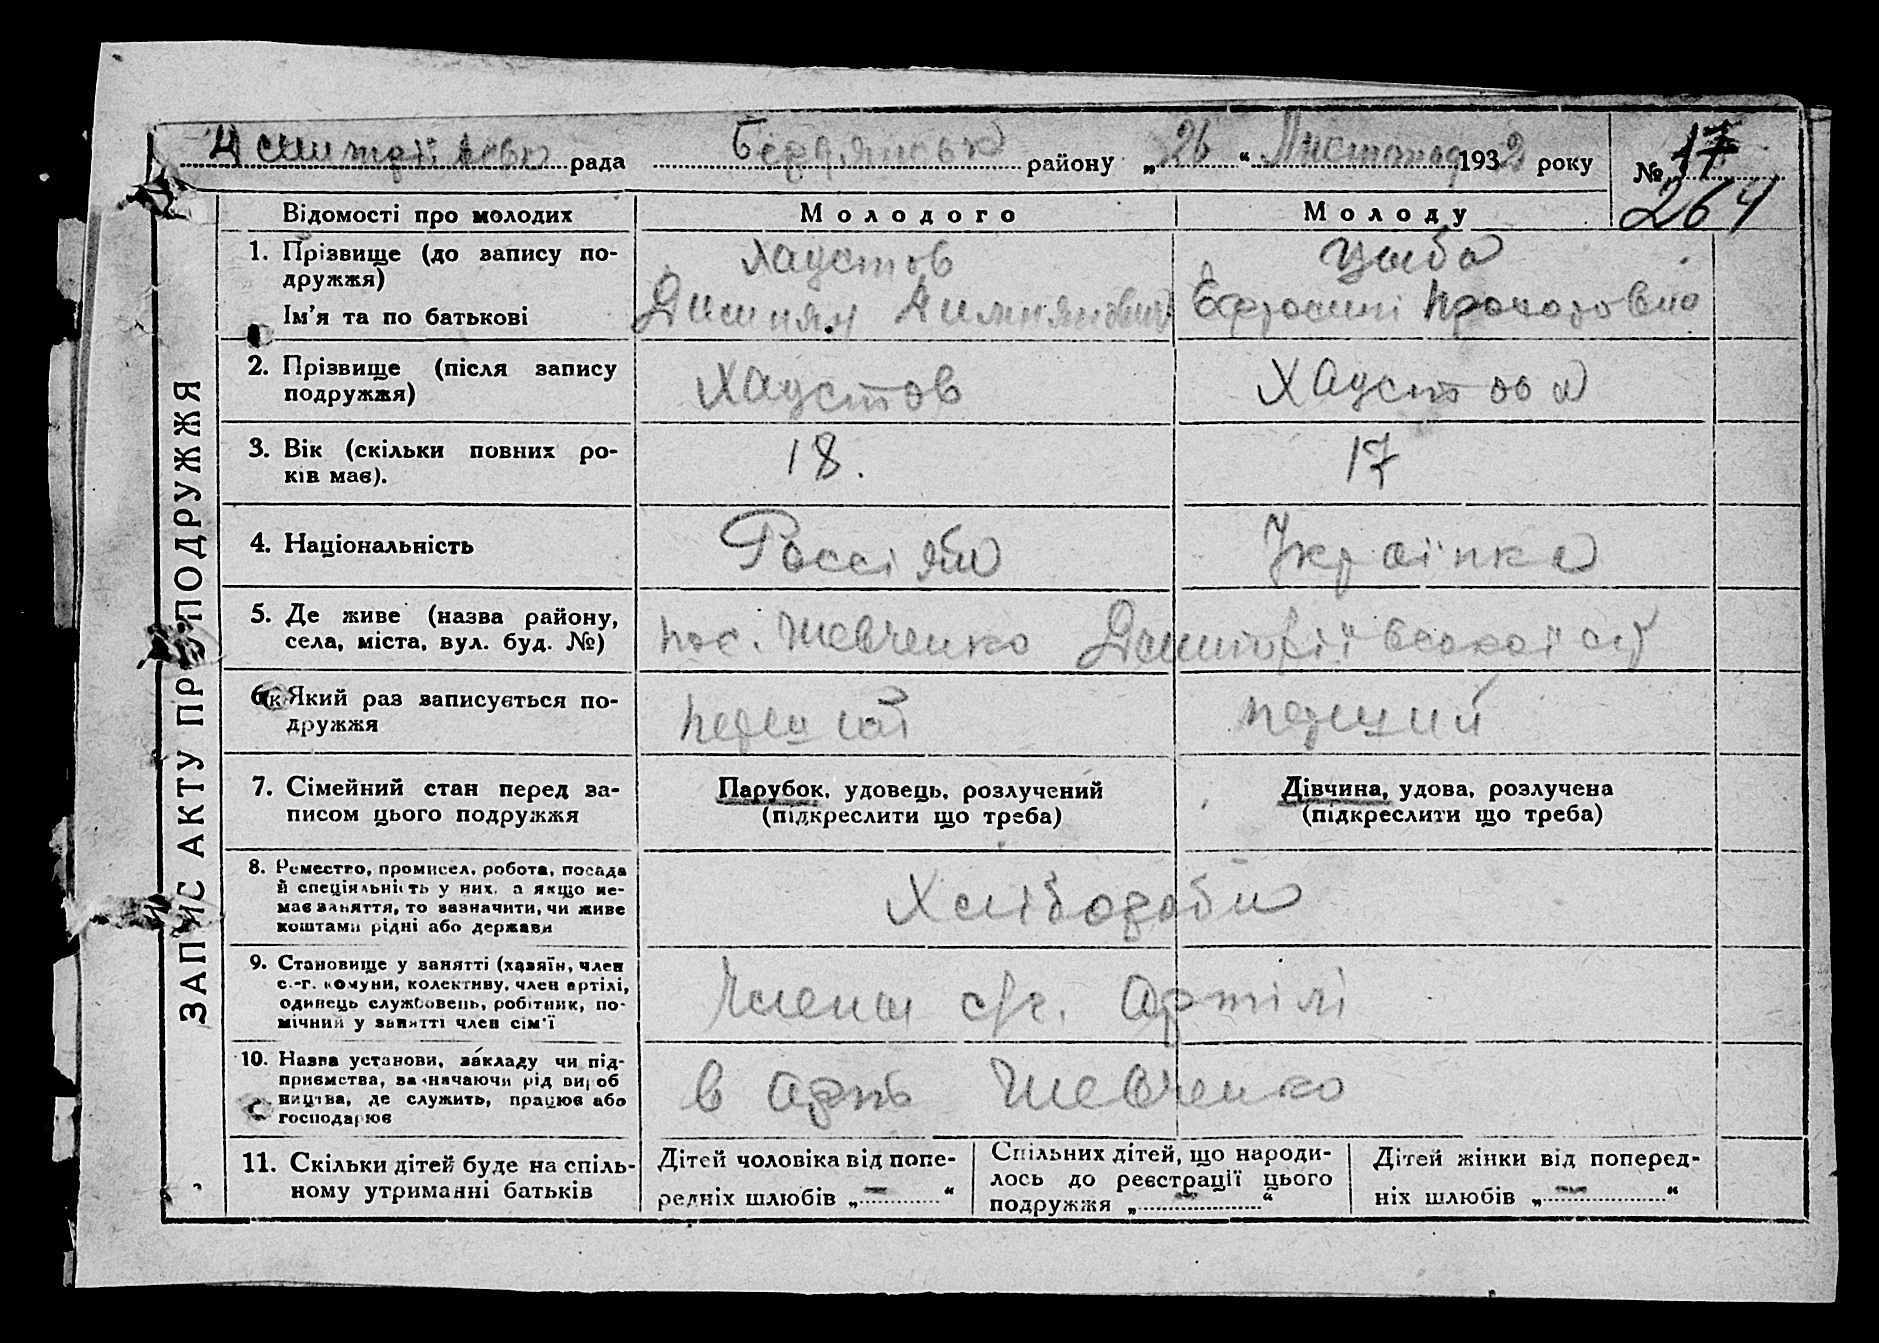 Дмитріївськ рада Бердянськ району „26“ Листопад 1932 року № 17
264
ЗАПИС АКТУ ПРО ПОДРУЖЖЯ
Відомості про молодих Молодого Молоду
1. Прізвище (до запису по-
дружжя)
Хаустов Цыба
Ім'я та по батькові
2. Прізвище (після запису
подружжя)
Хаустов Хаустова
3. Вік (скільки повних ро-
ків має).
18. 17
4. Національність Россіян Українка
5. Де живе (назва району,
села, міста, вул. буд. №)
пос. Шевченко
6. Який раз записується по-
дружжя
первий перший
7. Сімейний стан перед за-
писом цього подружжя
Парубок, удовець, розлучений
(підкреслити що треба)
Дівчина, удова, розлучена
(підкреслити що треба)
8. Ремество, промисел, робота, посада
й спеціяльність у них, а якщо не-
має заняття, то зазначити, чи живе
коштами рідні або держави
Хлібороби
9. Становище у занятті (хазяїн, член
с.-г. комуни, колективу, член артілі,
одинець службовець, робітник, по-
мічний у занятті член сім'ї
Члени с/г. Артілі
10. Назва установи, закладу чи під-
приємства, зазначаючи рід вироб
ництва, де служить, працює або
господарює
в Арть Шевченко
11. Скільки дітей буде на спіль-
ному утриманні батьків
Дітей чоловіка від попе-
редніх шлюбів „ — “
Спільних дітей, що народи-
лось до реєстрації цього
подружжя „ — “
Дітей жінки від поперед-
ніх шлюбів „ — “